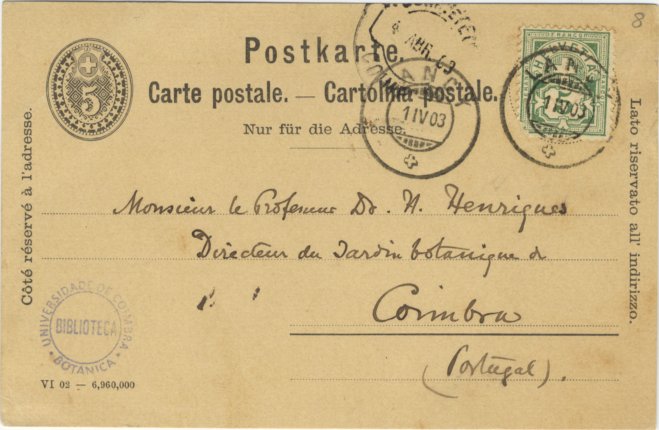 8
Postkarte.
Carte postale. — Cartolina postale.
Nur für die Adresse.
5
Côté réservé à l'adresse.
Lato riservato all' indirizzo.
4 ABR. 03
1 IV 03
1 IV 03
5
Monsieur le Professeur Dr. H. Henriques
Directeur du Jardin botanique de
Coimbra
(Portugal).
UNIVERSIDADE DE COIMBRA
BIBLIOTECA
BOTANICA
VI 02 — 6,960,000